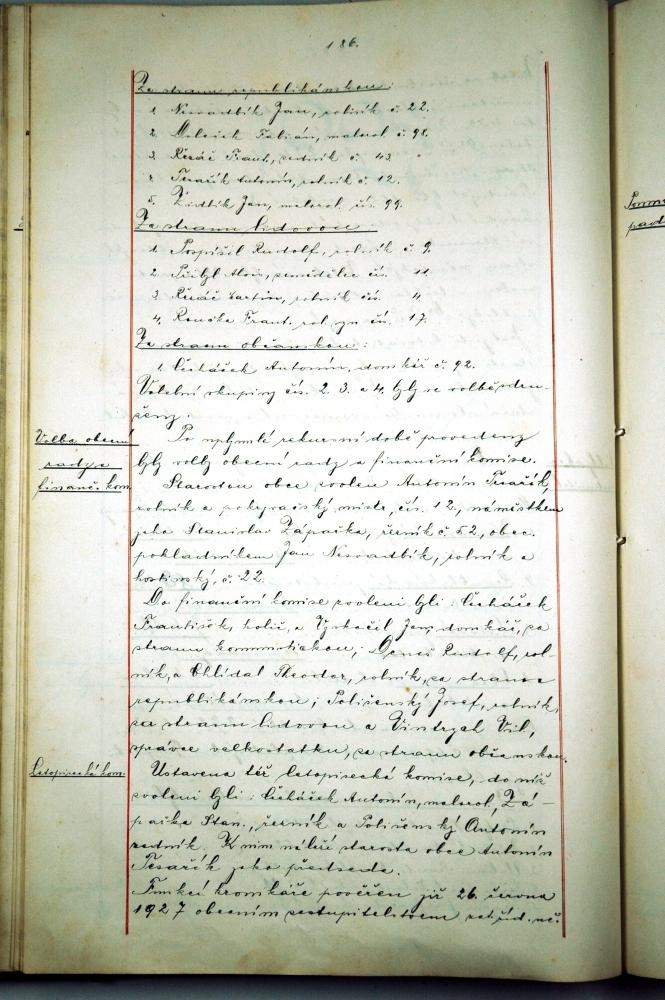 186.
Za stranu republikánskou:
1. Nesvadbík Jan, rolník č. 22.
2. Fabián, malorol. č. 98.
3. Řezáč Frant., rolník č. 43.
4. Tesařík Antonín, rolník č. 12.
5. Židlík Jan, malorol. čís. 99.
Za stranu lidovou:
1. Pospíšil Rudolf, rolník č. 9.
2. Přibyl Alois, zemědělec čís. 11.
3. Řezáč Martin, rolník čís. 4
4. Konečka Frant. rol. syn čís. 17.
Za stranu občanskou:
1. Čecháček Antonín, domkář č. 92.
Volební skupiny čís. 2. 3. a 4. byly ve volbě sdru-
ženy.
Volba obecní
rady a
finanč. kom.
Po uplynulé rekursní době provedeny
byly volby obecní rady a finanční komise.
Starostou obce zvolen Antonín Tesařík,
rolník a pokrývačský mistr, čís. 12., náměstkem
jeho Stanislav Zápařka, řezník č. 52., obec.
pokladníkem Jan Nesvadbík, rolník a
hostinský, č. 22.
Do finanční komise zvoleni byli: Čecháček
František, holič, a Vyskočil Jan, domkář, za
stranu komunistickou; Beneš Rudolf, rol-
ník, a Chlídal Theodor, rolník, za stranu
republikánskou; Polišenský Josef, rolník,
za stranu lidovou a Vindrgal Vil.,
správce velkostatku, za stranu občanskou.
Letopisecká kom.
Ustavena též letopisecká komise, do níž
zvoleni byli: Čecháček Antonín, malorol., Zá-
pařka Stan., řezník a Polišenský Antonín
rolník. K nim náleží starosta obce Antonín
Tesařík jako předseda.
Funkcí kronikáře pověřen již 26. června
1927 obecním zastupitelstvem říd. uč.